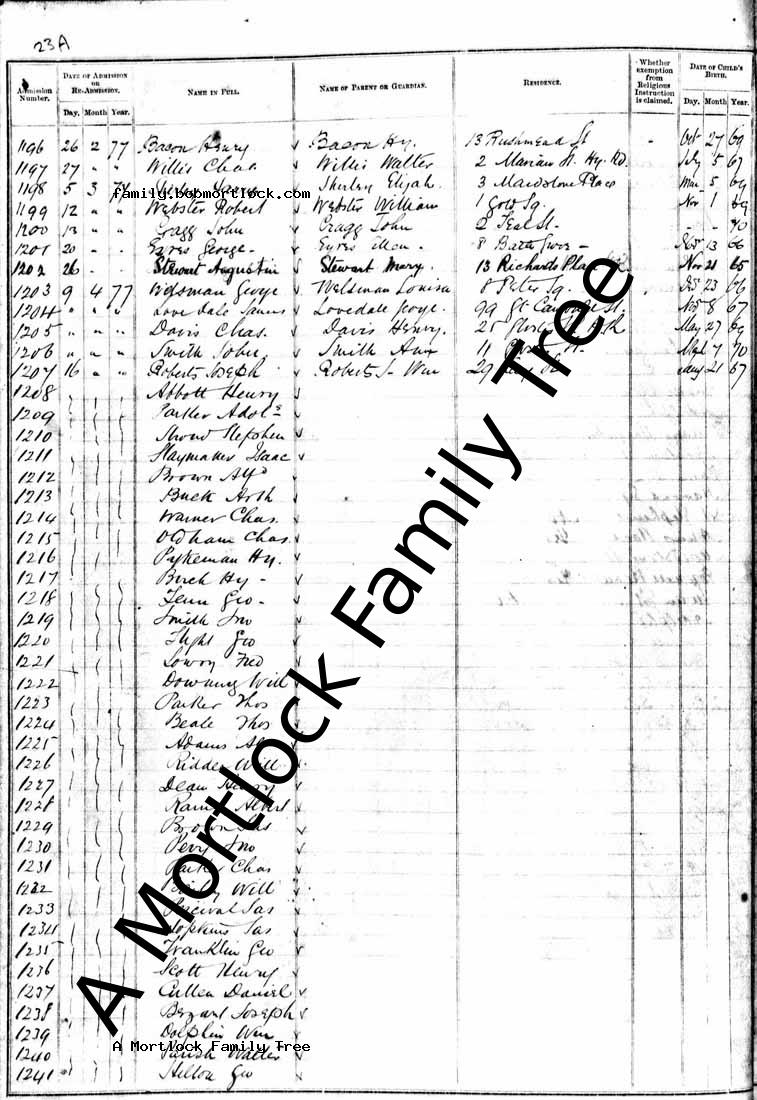 23A
Admission Number. DATE OF ADMISSION OR RE-ADMISSION. Day. Month Year. NAME IN FULL. NAME OF PARENT OR GUARDIAN. RESIDENCE. Whether exemption from Religious Instruction is claimed. DATE OF CHILD'S BIRTH. Day. Month Year.
1196 26 2 77 Bason Henry Bason Hy. 13 Rushmead St - Oct 27 69
1197 27 " " Willis Chas Willis Walter 2 Marian St. Hy. Rd. July 5 67
1198 5 3 Shurley Elijah 3 Maidstone Place Mar 5 69
family.bobmortlock.com
1199 12 " " Webster Robert Webster William 1 Gold Sq. Nov 1 69
1200 13 " " Cragg John Cragg John 2 Teal St. - - 70
1201 20 - - Eyres George - Eyres 8 13 66
1202 26 - - Stewart Augustin Stewart Mary. 13 Richards Place Nov 21 65
1203 9 4 77 Weldsman George Weldsman Louisa 8 Peter Sq. 23 66
1204 " " " Lovedale James Lovedale George. 99 Gt Cambridge St Nov 8 67
1205 " " " Davis Chas. Davis Henry. 25 May 27 69
1206 " " " Smith John Smith Ann 11 7 70
1207 16 " " Roberts Joseph Roberts Wm 29 21 67
1208 Abbott Henry
1209 Parker Adol
1210 Stephen
1211 Slaymaker Isaac
1212 Brown Alfd
1213 Buck Arth
1214 Warner Chas.
1215 Oldham Chas.
1216 Pykeman Hy.
1217 Birch Hy -
1218 Fenn Geo -
1219 Smith Jno
1220 Flight Geo
1221 Lowry Fred
1222 Downing Will
1223 Parker Thos
1224 Beale Thos
1225 Adams
1226 Ridde Will
1227 Dean Henry
1228 Albert
1229 Brown Jas
1230 Perry Jno
1231 Chas
1232 Will
1233 Percival Jas
1234 Hopkins Jas
1235 Franklin Geo
1236 Scott Henry
1237 Cullen Daniel
1238 Bezant Joseph
1239 Dolphin Wm
1240 Parish Walter
1241 Hilton Geo
A Mortlock Family Tree
A Mortlock Family Tree